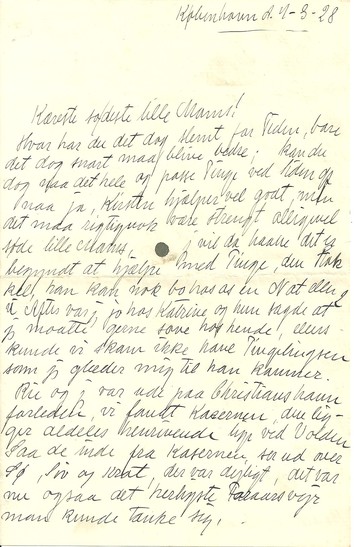 København d. 7-3-28
Kæreste sødeste lille Mams!
Hvor har du det dog slemt for Tiden, bare
det dog snart maa blive bedre; kan du
dog naa det hele og passe Tinge ved Siden af
naa ja, Kirsten hjælper vel godt, men
det maa rigtignok være strengt alligevel
søde lille Mams, jeg vil da haabe det er
begyndt at hjælpe med Tinge, den
han kan nok bo hos os en Nat eller
Aftes var jeg hos Katrine og hun sagde at
jeg maatte gerne sove hos hende, ellers
kunde vi skam ikke have Tingelingsen
som jeg glæder mig til han kommer.
Rie og jeg var ude paa Christianshavn
forleden, vi fandt Kasernen, den lig-
ger aldeles henrivende lige ved Volden
Saa de inde fra Kasernen ser ud over
Sø, og, der var dejligt, det var
nu ogsaa det herligste Foraarsvejr
man kunde tænke sig.